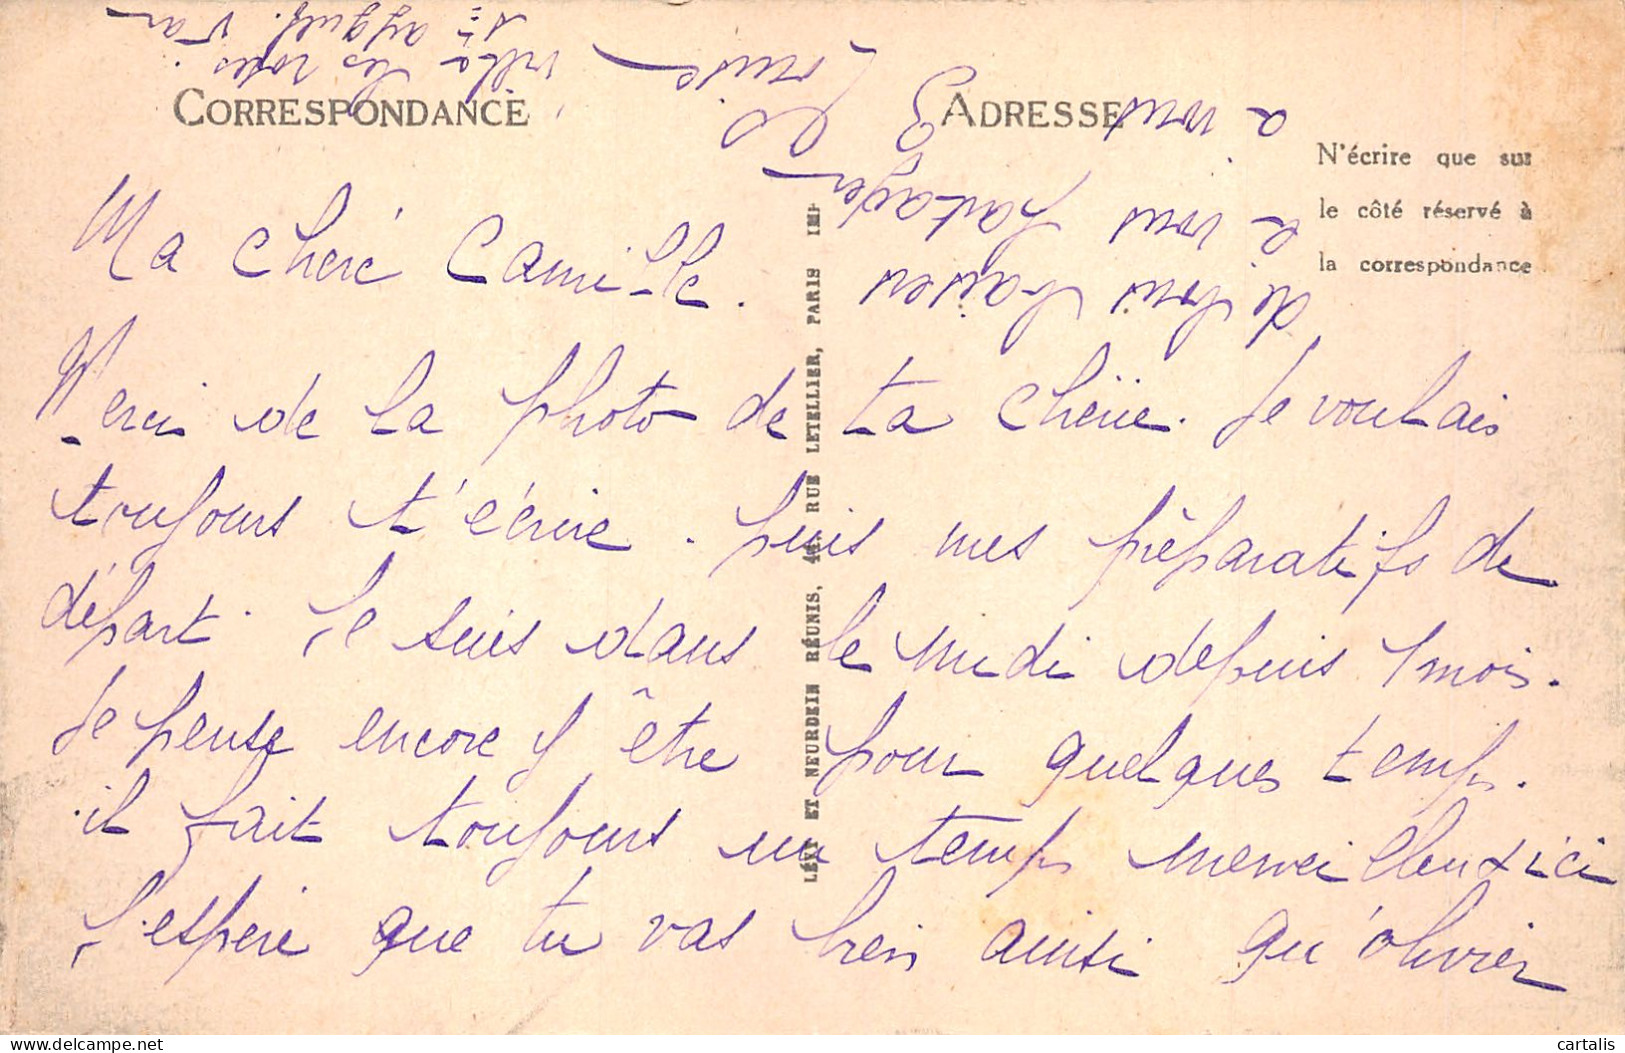 CORRESPONDANCE
ADRESSE
N'écrire que sur
le côté réservé à
la correspondance
LÉVY ET NEURDEIN RÉUNIS, 44, RUE LETELLIER, PARIS IMP
Ma chère Camille.
Merci de la photo de ta chérie. Je voulais
toujours t'écrire. puis mes préparatifs de
départ. Je suis dans le midi depuis 1 mois.
Je pense encore y être pour quelques temps.
il fait toujours un temps merveilleux ici
J'espère que tu vas bien ainsi qu'olivier
de bons baisers
à vous partager
à vous 3
Louise
villa les roses
Ste aygulf. Var
cartalis